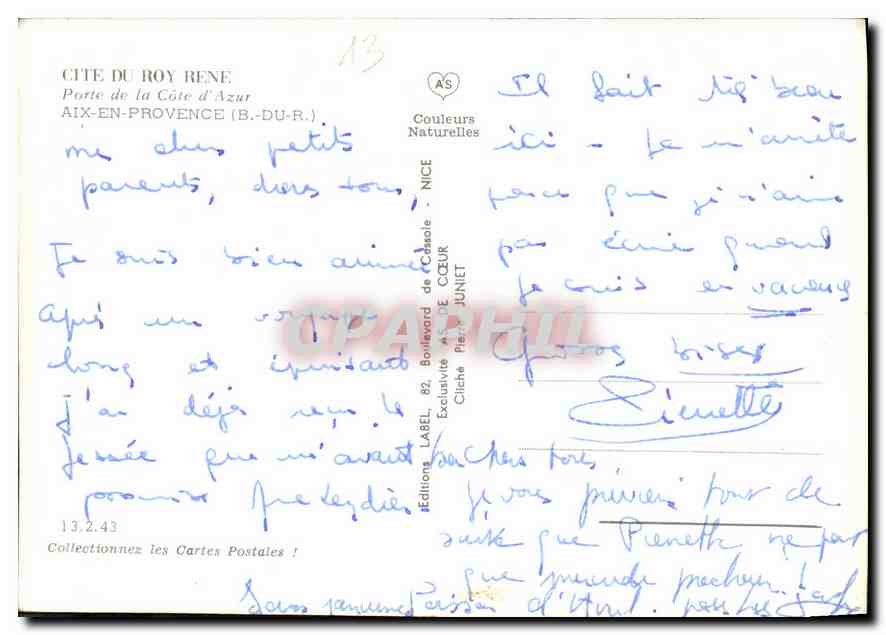 13
CITE DU ROY RENE
Porte de la Côte d'Azur
AIX-EN-PROVENCE (B.-DU-R.)
AS
Couleurs
Naturelles
mes chers petits
parents, chers tous,
Je suis bien arrivée
après un voyage
long et épuisant
J'ai déjà reçu le
que m'avait
13.2.43
Collectionnez les Cartes Postales !
Editions LABEL, 82, Boulevard de Cessole - NICE
Exclusivité AS DE CŒUR
Cliché Pierre JUNIET
CPAPHIL
Il fait très beau
ici - Je m'arrête
parce que je n'aime
pas écrire quand
je suis en vacances
Grosses bises
Pierrette
chers tous
je vous préviens tout de
suite que Pierrette ne
que